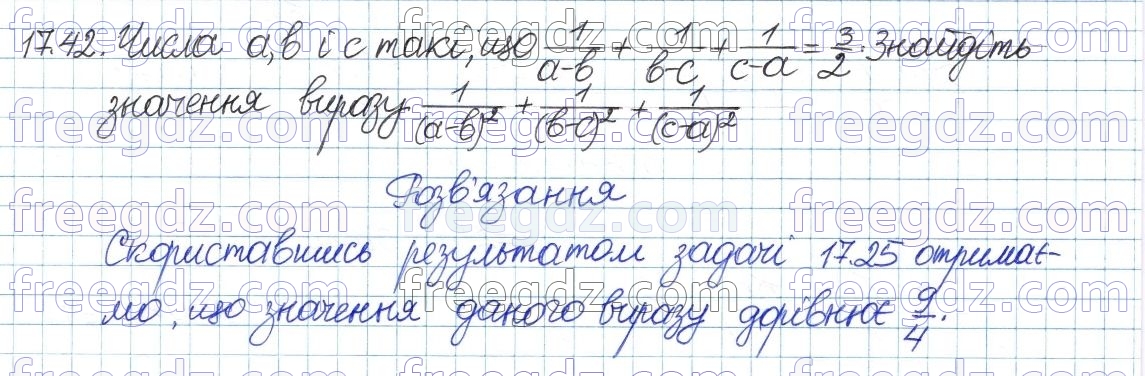 17.42. Числа a, b і c такі, що 1/(a-b) + 1/(b-c) + 1/(c-a) = 3/2. Знайдіть
значення виразу 1/(a-b)² + 1/(b-c)² + 1/(c-a)²
Розв'язання
Скориставшись результатом задачі 17.25 отримає-
мо, що значення даного виразу дорівнює 9/4.
freegdz.com